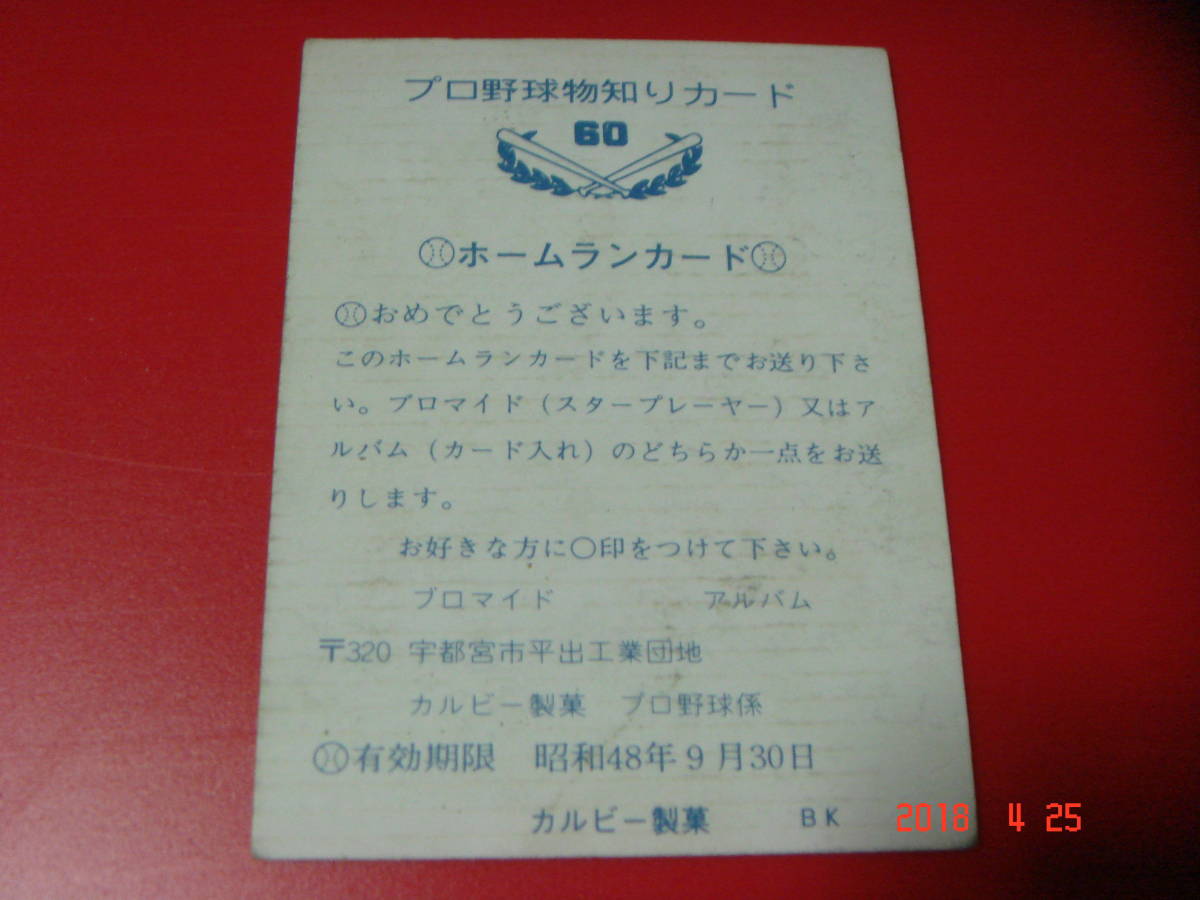 プロ野球物知りカード
60
ホームランカード
おめでとうございます。
このホームランカードを下記までお送り下さ
い。ブロマイド(スタープレーヤー)又はア
ルバム(カード入れ)のどちらか一点をお送
りします。
お好きな方に○印をつけて下さい。
ブロマイド アルバム
〒320 宇都宮市平出工業団地
カルビー製菓 プロ野球係
有効期限 昭和48年9月30日
カルビー製菓 BK
2018 4 25